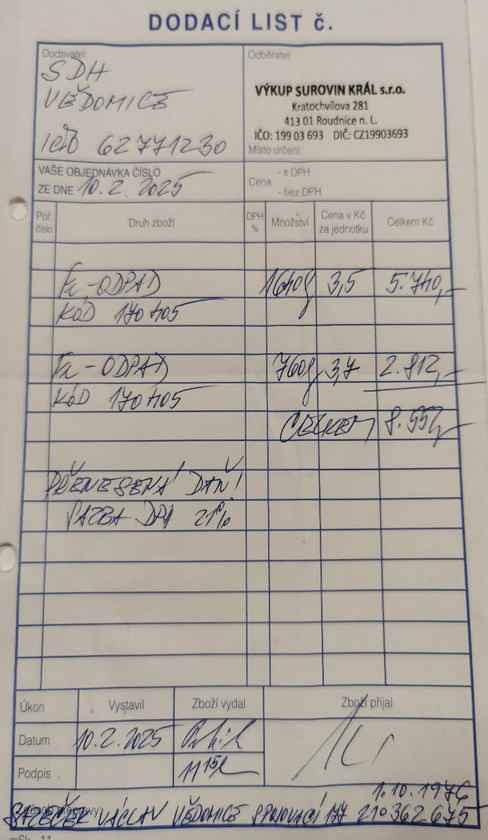 DODACÍ LIST č.
Dodavatel:
SDH
VĚDOMICE
IČO 62771230
Odběratel:
VÝKUP SUROVIN KRÁL s.r.o.
Kratochvílova 281
413 01 Roudnice n. L.
IČO: 199 03 693 DIČ: CZ19903693
Místo určení:
VAŠE OBJEDNÁVKA ČÍSLO
ZE DNE 10.2.2025
Cena - s DPH
- bez DPH
Poř. číslo Druh zboží DPH % Množství Cena v Kč za jednotku Celkem Kč
Fe-ODPAD 1640 3,5 5.740,-
KÓD 170405
Fe-ODPAD 760 3,7 2.812,-
KÓD 170405
CELKEM 8.552,-
PŘENESENÁ DAŇ!
SAZBA DPH 21%
Úkon Vystavil Zboží vydal Zboží přijal
Datum 10.2.2025
Podpis 11 15
1.10.1976
VÁCLAV VĚDOMICE 177 210362675